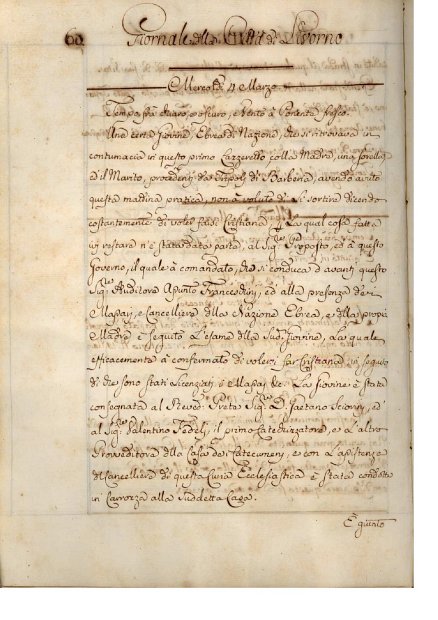 60 Giornale della Città di Livorno
Mercoledì 4 Marzo
Tempo frà chiaro, e oscuro, e Vento à Ponente fresco.
Una certa Giovine, Ebrea di Nazione, che si ritrovava in
contumacia in questo primo Lazzeretto colla Madre, una sorella
ed il Marito, procedenti da Tripoli di Barberia, avendo avuto
questa mattina pratica, non à voluto di li sortire dicendo
costantemente di voler farsi Cristiana. La qual cosa fatta
ivi restare n'è stata data parte, al Sig.re Proposto, ed à questo
Governo, il quale à comandato, che si conduca d'avanti questo
Sig.re Auditore Franceschini, ed alla presenza dei
Massari, e Cancelliere della Nazione Ebrea, e della propria
Madre è seguito l'esame della sud.a Giovine, la quale
efficacemente à confermato di volersi far Cristiana, in seguito
di che sono stati licenziati i Massari &c. La giovine è stata
consegnata al Reved. Prete Sig.re D. Gaetano ed
al Sig.re Valentino Fedeli, il primo Catechizzatore, e l'altro
Provveditore della Casa dei Catecumeni, e con l'assistenza
del Cancelliere di questa Curia Ecclesiastica è stata condotta
in Carrozza alla suddetta Casa.
È giunto